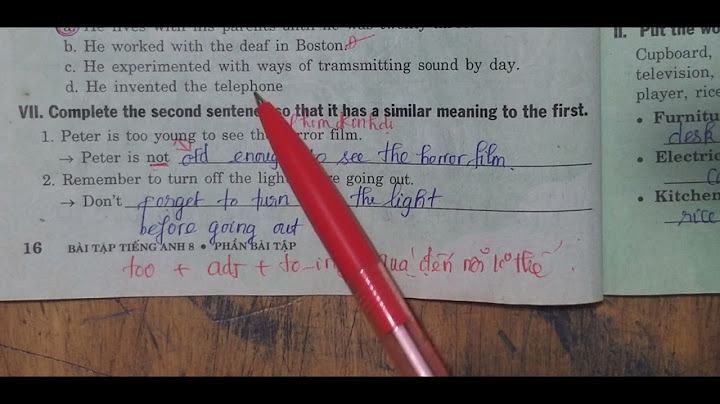 a. He lives with his parents until he was twenty three.
b. He worked with the deaf in Boston.
c. He experimented with ways of tramsmitting sound by day.
d. He invented the telephone
VII. Complete the second sentence so that it has a similar meaning to the first.
phim kinh dị
1. Peter is too young to see the horror film.
→ Peter is not old enough to see the horror film.
2. Remember to turn off the light before going out.
→ Don't forget to turn the light
before going out
16 BÀI TẬP TIẾNG ANH 8 • PHẦN BÀI TẬP
too + adj + to quá đến nỗi ko thể
II. Put the wo
Cupboard,
television,
player, rice
• Furnitu
desk
• Electric
• Kitchen
rice